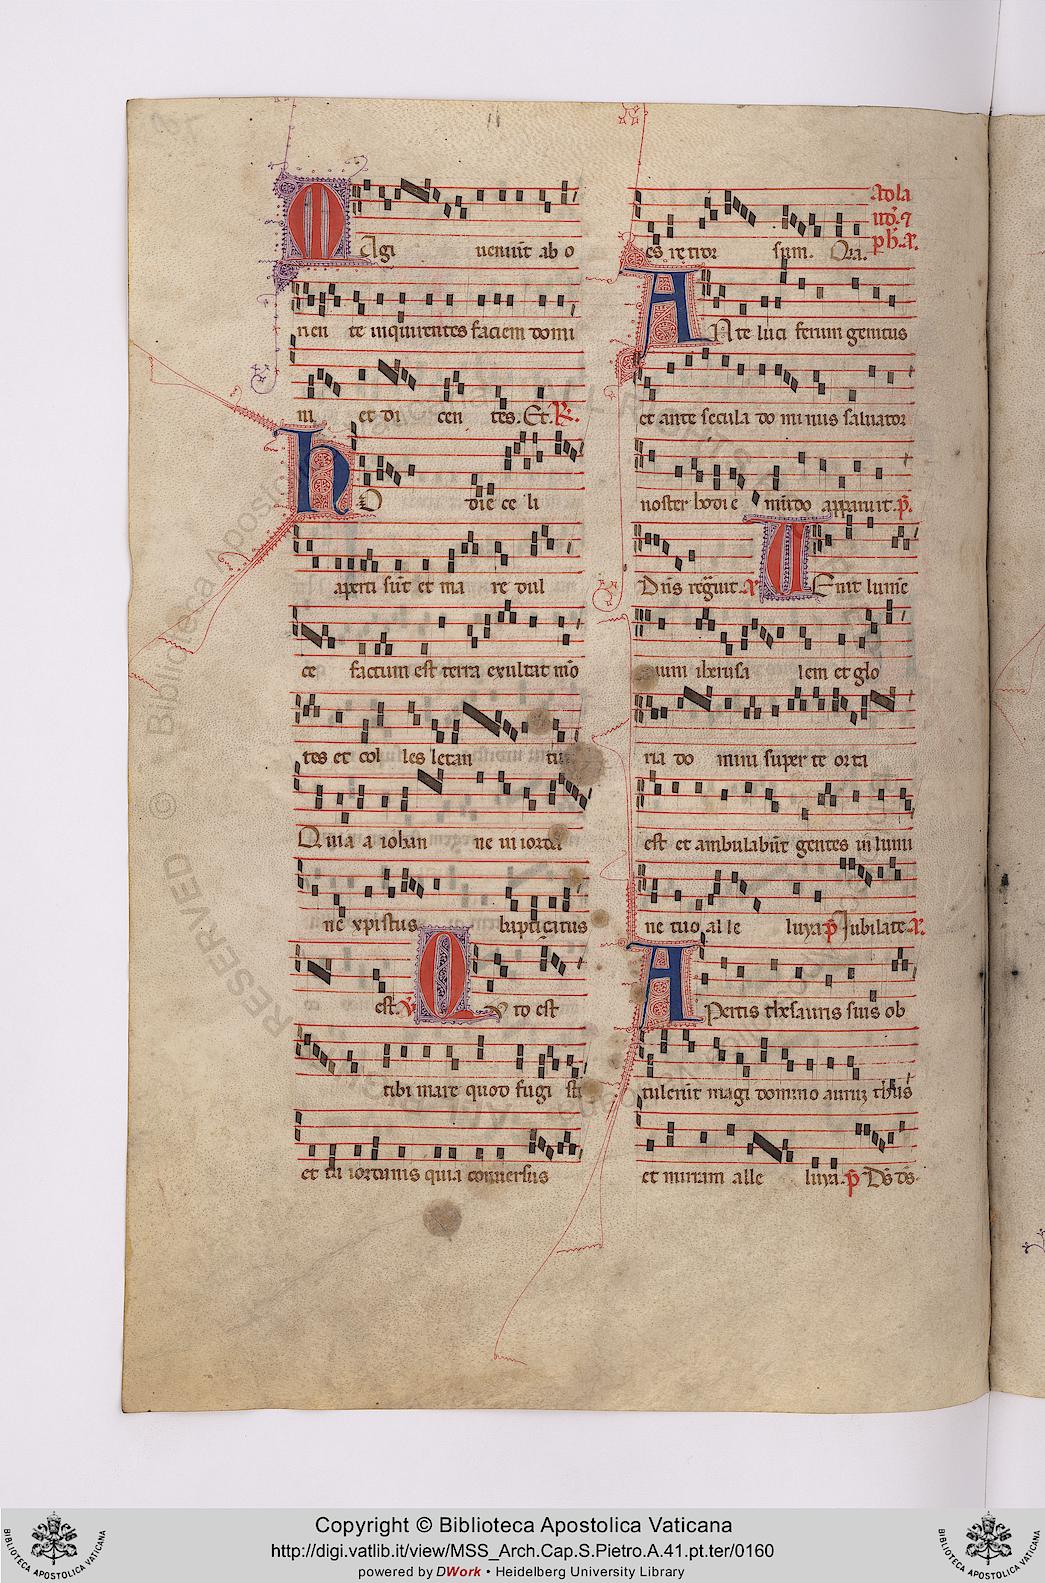 MAgi veniunt ab o
rien te inquirentes faciem domi
ni et di cen tes. Et. R.
HO die ce li
aperti sūt et ma re dul
ce factum est terra exultat mō
tes et col les letan tur
Quia a iohan ne in iorda
ne xpistus baptiçatus
est. V. QVid est
tibi mare quod fugi sti
et tu iordanis quia conversus
es retror sum. Qia.
Ad la
ANte luci ferum genitus
et ante secula dominus salvator
noster hodie mūdo apparuit. p̄.
Dn̄s regn̄vit. A. VEnit lumē
tuum iherusa lem et glo
ria do mini super te orta
est et ambulabūt gentes in lumi
ne tuo alle luya p̄ Jubilate. A.
APertis thesauris suis ob
tulerūt magi domino aurum thus
et mirram alle luya. p̄ Ds̄ ds̄.
RESERVED
© Biblioteca Apostolica
Copyright © Biblioteca Apostolica Vaticana
http://digi.vatlib.it/view/MSS_Arch.Cap.S.Pietro.A.41.pt.ter/0160
powered by DWork • Heidelberg University Library
BIBLIOTECA APOSTOLICA VATICANA
BIBLIOTECA APOSTOLICA VATICANA